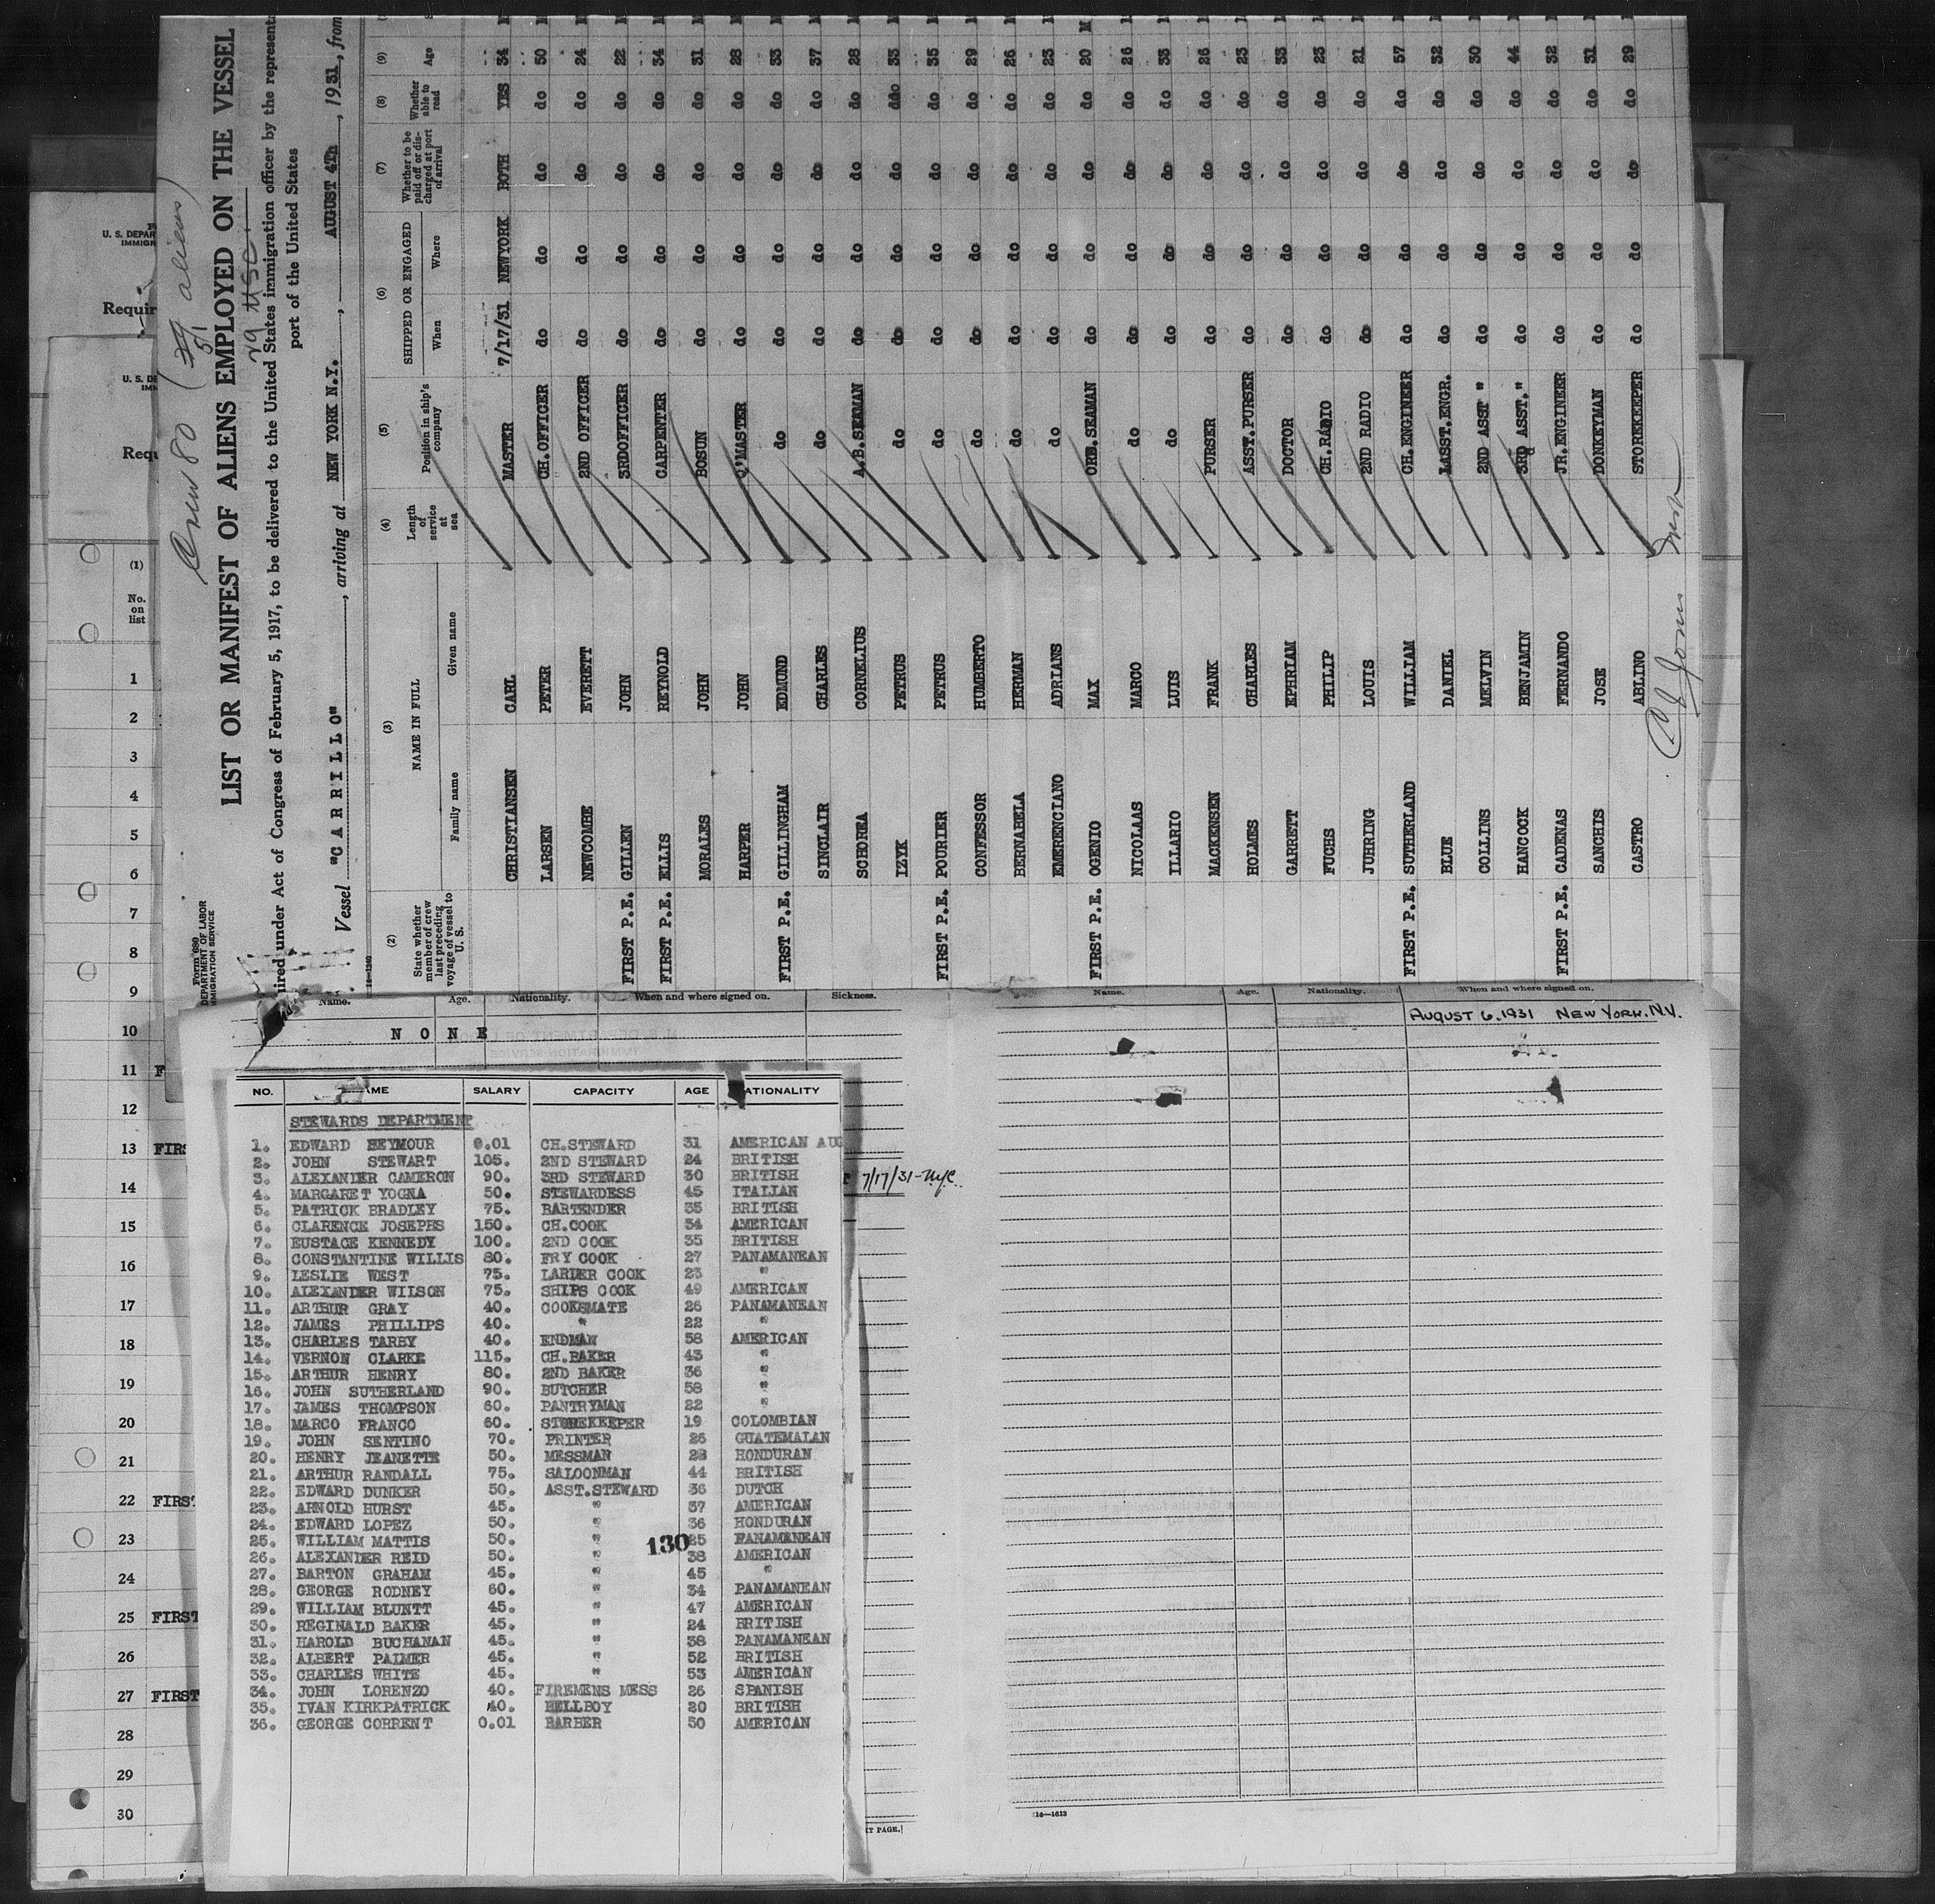 Form 680
DEPARTMENT OF LABOR
IMMIGRATION SERVICE
Crew 80 ( 51 aliens)
29 USC.
LIST OR MANIFEST OF ALIENS EMPLOYED ON THE VESSEL
ired under Act of Congress of February 5, 1917, to be delivered to the United States immigration officer by the represent
port of the United States
Vessel "CARRILLO", arriving at NEW YORK N.Y., AUGUST 4Th, 1931, from
(2) (3) (4) (5) (6) (7) (8) (9)
State whether member of crew last preceding voyage of vessel to U. S.
NAME IN FULL
Family name Given name
Length of service at sea
Position in ship's company
SHIPPED OR ENGAGED
When Where
Whether to be paid off or discharged at port of arrival
Whether able to read
Age
CHRISTIANSEN CARL MASTER 7/17/31 NEWYORK BOTH YES 34
LARSEN PETER CH.OFFICER do do do do 50
NEWCOMBE EVERETT 2ND OFFICER do do do do 24
FIRST P.E. GILLEN JOHN 3RDOFFICER do do do do 22
FIRST P.E. ELLIS REYNOLD CARPENTER do do do do 34
MORALES JOHN BOSUN do do do do 31
HARPER JOHN Q'MASTER do do do do 28
FIRST P.E. GILLINGHAM EDMUND do do do do do 33
SINCLAIR CHARLES do do do do do 37
SCHOREA CORNELIUS A.B.SEAMAN do do do do 28
IZYK PETRUS do do do do ddo 33
FIRST P.E. POURIER PETRUS do do do do do 35
CONFESSOR HUMBERTO do do do do do 29
BERNABELA HERMAN do do do do do 26
EMERENCIANO ADRIANS do do do do do 23
FIRST P.E. OGENIO MAX ORD.SEAMAN do do do do 20 M
NICOLAAS MARCO do do do do do 26
ILLARIO LUIS do do do do do 33
MACKENSEN FRANK PURSER do do do do 26
HOLMES CHARLES ASST.PURSER do do do do 23
GARRETT EPHRIAM DOCTOR do do do do 33
FUCHS PHILIP CH.RADIO do do do do 23
JUHRING LOUIS 2ND RADIO do do do do 21
FIRST P.E. SUTHERLAND WILLIAM CH.ENGINEER do do do do 57
BLUE DANIEL 1ASST.ENGR. do do do do 32
COLLINS MELVIN 2ND ASST " do do do do 30
HANCOCK BENJAMIN 3RD ASST." do do do do 44
FIRST P.E. CADENAS FERNANDO JR.ENGINEER do do do do 32
SANCHIS JOSE DONKEYMAN do do do do 31
CASTRO ABLINO STOREKEEPER do do do do 29
U. S. DEPAR
IMMIGR
Requir
U. S. DE
IMM
Requ
(1)
No. on list
1
2
3
4
5
6
7
8
9
10
11 F
12
13 FIRS
14
15
16
17
18
19
20
21
22 FIRST
23
24
25 FIRST
26
27 FIRST
28
29
30
Name. Age. Nationality. When and where signed on. Sickness.
NONE
Name. Age. Nationality. When and where signed on.
AUGUST 6, 1931 NEW YORK. N.Y.
7/17/31-N.Y.C.
NO. NAME SALARY CAPACITY AGE NATIONALITY
STEWARDS DEPARTMENT
1. EDWARD SEYMOUR 0.01 CH.STEWARD 31 AMERICAN AUG
2. JOHN STEWART 105. 2ND STEWARD 24 BRITISH
3. ALEXANDER CAMERON 90. 3RD STEWARD 30 BRITISH
4. MARGARET YOGNA 50. STEWARDESS 45 ITALIAN
5. PATRICK BRADLEY 75. BARTENDER 35 BRITISH
6. CLARENCE JOSEPHS 150. CH.COOK 34 AMERICAN
7. EUSTACE KENNEDY 100. 2ND COOK 35 BRITISH
8. CONSTANTINE WILLIS 80. FRY COOK 27 PANAMANEAN
9. LESLIE WEST 75. LARDER COOK 23 "
10. ALEXANDER WILSON 75. SHIPS COOK 49 AMERICAN
11. ARTHUR GRAY 40. COOKSMATE 26 PANAMANEAN
12. JAMES PHILLIPS 40. " 22 "
13. CHARLES TARBY 40. ENDMAN 58 AMERICAN
14. VERNON CLARKE 115. CH.BAKER 43 "
15. ARTHUR HENRY 80. 2ND BAKER 36 "
16. JOHN SUTHERLAND 90. BUTCHER 58 "
17. JAMES THOMPSON 60. PANTRYMAN 22 "
18. MARCO FRANCO 60. STOREKEEPER 19 COLOMBIAN
19. JOHN SENTINO 70. PRINTER 26 GUATEMALAN
20. HENRY JEANETTE 50. MESSMAN 28 HONDURAN
21. ARTHUR RANDALL 75. SALOONMAN 44 BRITISH
22. EDWARD DUNKER 50. ASST.STEWARD 36 DUTCH
23. ARNOLD HURST 45. " 37 AMERICAN
24. EDWARD LOPEZ 50. " 36 HONDURAN
25. WILLIAM MATTIS 50. " 25 PANAMANEAN
130
26. ALEXANDER REID 50. " 38 AMERICAN
27. BARTON GRAHAM 45. " 45 "
28. GEORGE RODNEY 60. " 34 PANAMANEAN
29. WILLIAM BLUNTT 45. " 47 AMERICAN
30. REGINALD BAKER 45. " 24 BRITISH
31. HAROLD BUCHANAN 45. " 38 PANAMANEAN
32. ALBERT PALMER 45. " 52 BRITISH
33. CHARLES WHITE 45. " 53 AMERICAN
34. JOHN LORENZO 40. FIREMENS MESS 26 SPANISH
35. IVAN KIRKPATRICK 40. BELLBOY 20 BRITISH
36. GEORGE CORRENT 0.01 BARBER 50 AMERICAN
14—1613
T PAGE.